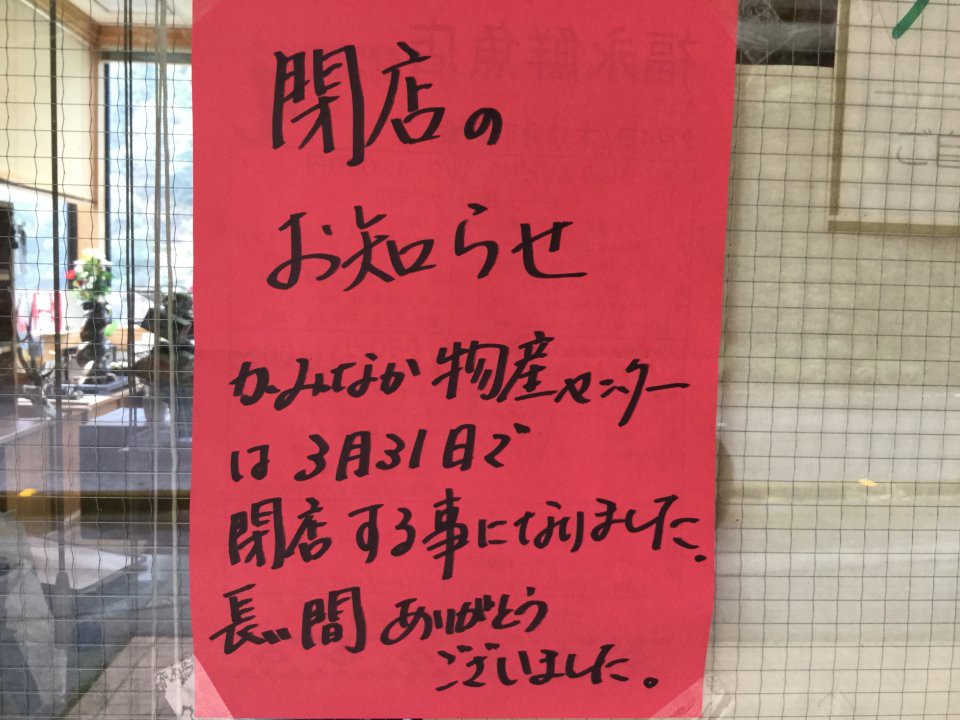 閉店の
お知らせ
かみなか物産センター
は3月31日で
閉店する事になりました。
長い間ありがとう
ございました。
福永鮮魚店
ご自